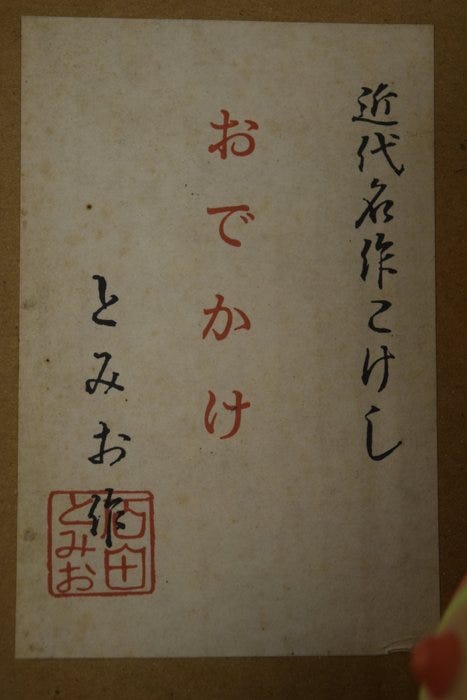 近代名作こけし
おでかけ
とみお作
田
とみお